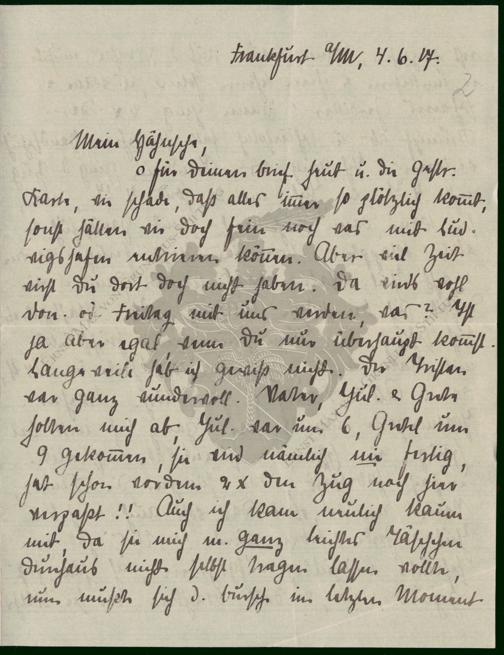 Frankfurt a/M, 4.6.17.
2
Mein
o für deinen brief heut u. die gestr.
Karte, wie schade, daß alles immer so plötzlich kommt,
sonst hätten wir doch fein noch was mit Lud-
wigshafen können. Aber viel Zeit
wirst Du dort doch nicht haben. Da wirds wohl
Don. od. Freitag mit uns werden, was? Ist
ja aber egal wenn Du nur überhaupt kommst.
Langeweile hab ich gewiß nicht. Der Tristan
war ganz wundervoll. Vater, Jul. & Grete
holten mich ab, Jul. war um 6, Gretel um
9 gekommen, sie wird nämlich nie fertig,
hat schon vordem 2x den Zug nach hier
verpaßt!! Auch ich kam neulich kaum
mit, da sie mich m. ganz leichtes Täschchen
durchaus nicht selbst tragen lassen wollte,
nun mußte sich d. bursche im letzten Moment